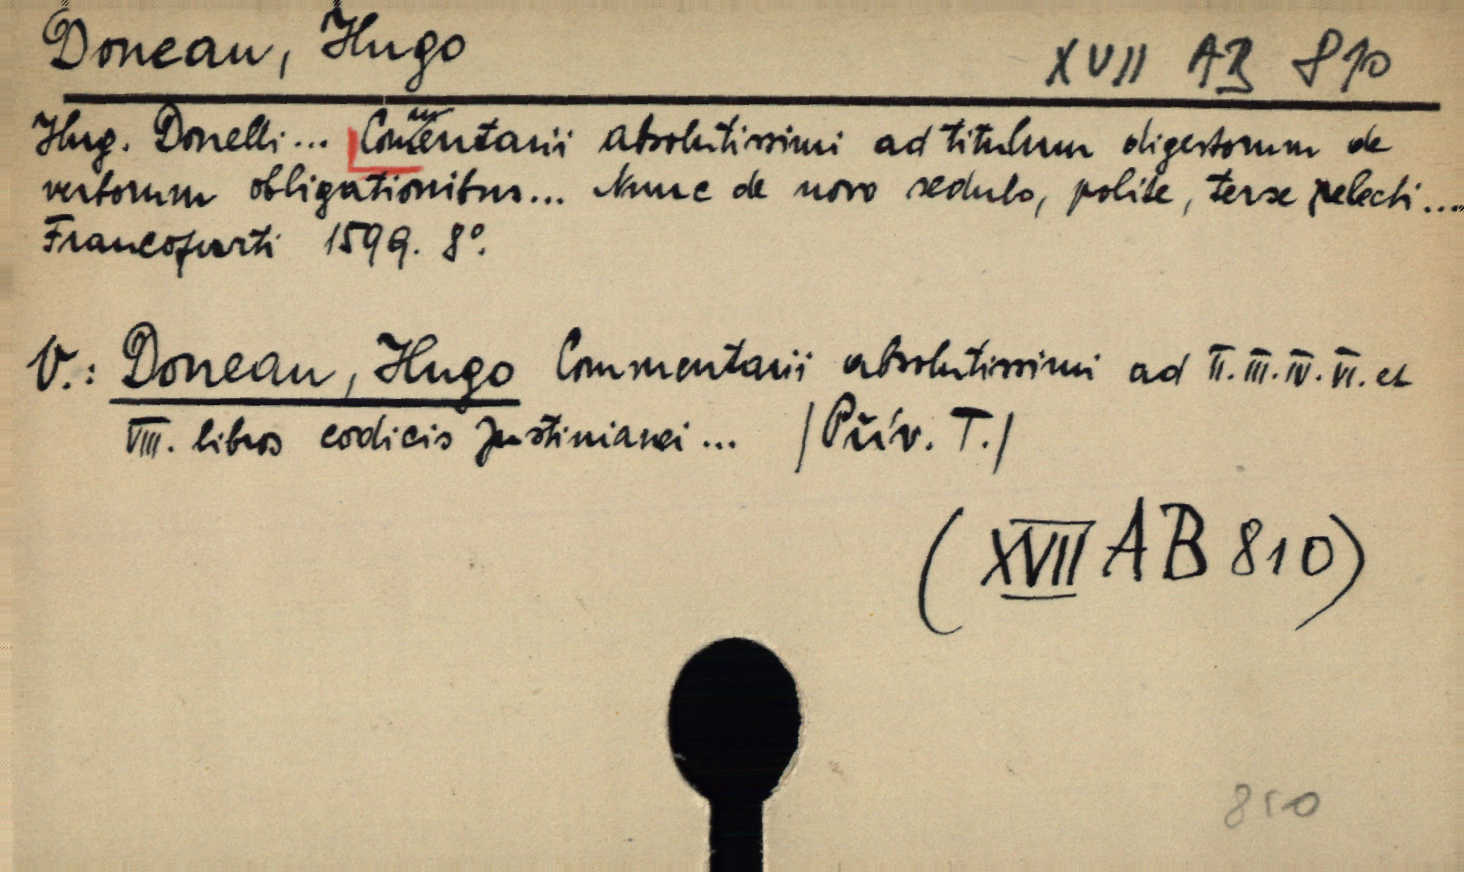 Doneau, Hugo XVII AB 810
Hug. Donelli... Commentarii absolutissimi ad titulum digestorum de
verborum obligationibus... Nunc de novo sedulo, polite, terse relecti....
Francofurti 1599. 8°.
V.: Doneau, Hugo Commentarii absolutissimi ad II. III. IV. VI. et
VIII. libros codicis Justinianei... /Přív. T./
(XVII AB 810)
810